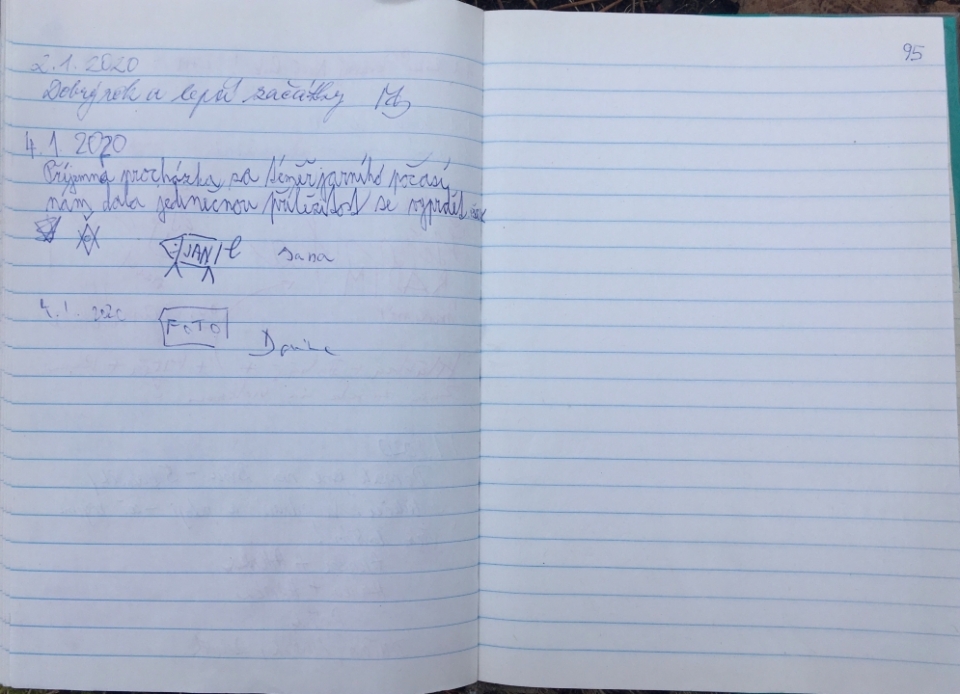 95
2.1.2020
Dobrý rok a lepší začátky
4.1 2020
Příjemná procházka za téměř jarního počasí
nám dala jedinečnou příležitost se vyprdět
JAN Jana
4.1. 2020
FOTO